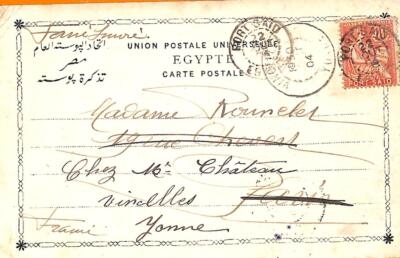 Faire suivre
اتحاد البوستة العام
مصر
تذكرة بوستة
UNION POSTALE UNIVERSELLE
EGYPTE
CARTE POSTALE
PORT SAID
PORT-SAID
04
Madame
19 rue Chevert
Chez Mr Château
Vincelles
Paris
Yonne